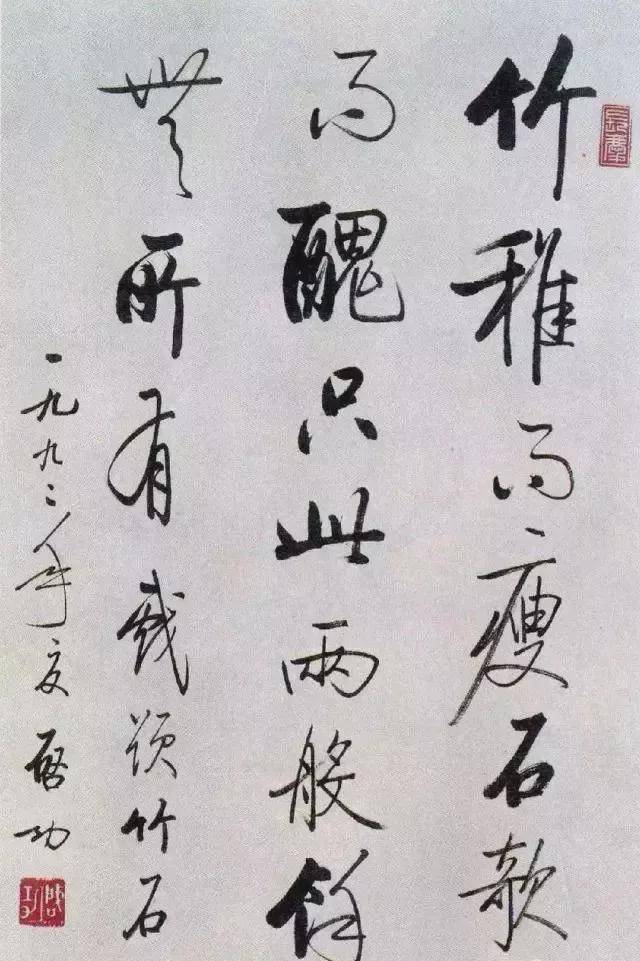 竹稚而瘦石欹
而醜只此兩般餘
無所有戲題竹石
一九九二年夏啓功
啓功